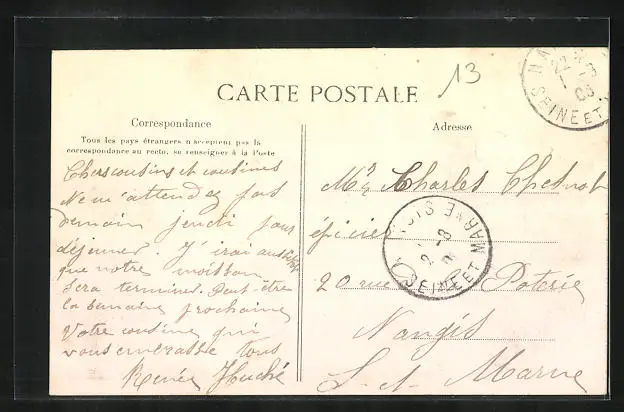 13
CARTE POSTALE
Correspondance
Tous les pays étrangers n'acceptent pas la
correspondance au recto, se renseigner à la Poste
Adresse
Chers cousins et cousines
Ne m'attendez pas
demain jeudi pour
déjeuner. J'irai aussitôt
que notre moisson
sera terminée. Peut-être
la semaine prochaine
Votre cousine qui
vous embrasse tous
Renée Huché
Mr Charles Chesnot
épicier
20 rue Poterie
Nangis
S. et Marne
NANGIS
SEINE ET MARNE
SEINE ET M